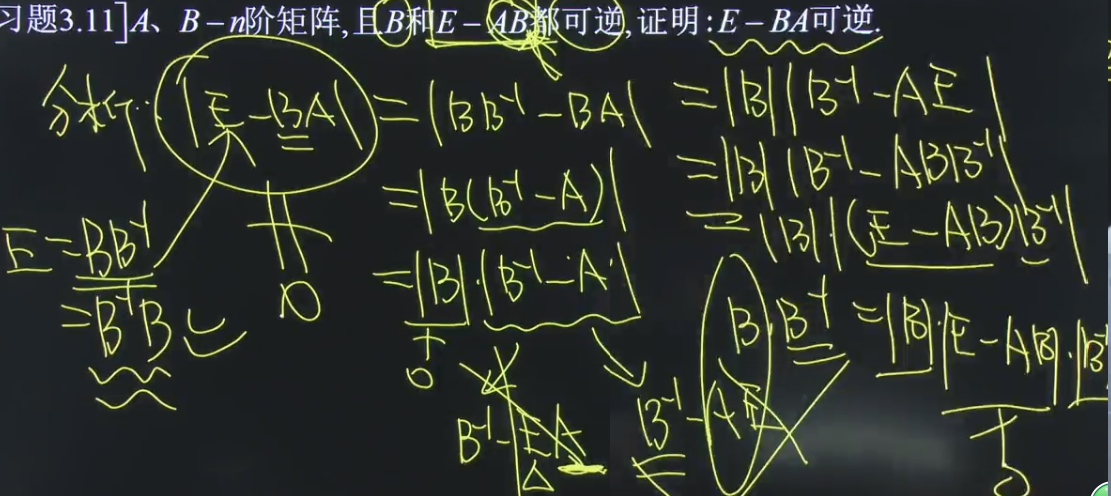 习题3.11]A、B-n阶矩阵,且B和E-AB都可逆,证明:E-BA可逆.
分析: |E-BA| = |BB⁻¹-BA|
=|B(B⁻¹-A)|
=|B|·|B⁻¹-A|
≠
0
≠
0
E=BB⁻¹
=B⁻¹B
B⁻¹-EA
B⁻¹-AE
BB⁻¹
=|B||B⁻¹-AE|
=|B||B⁻¹-ABB⁻¹|
=|B|·|(E-AB)B⁻¹|
=|B|·|E-AB|·|B⁻¹